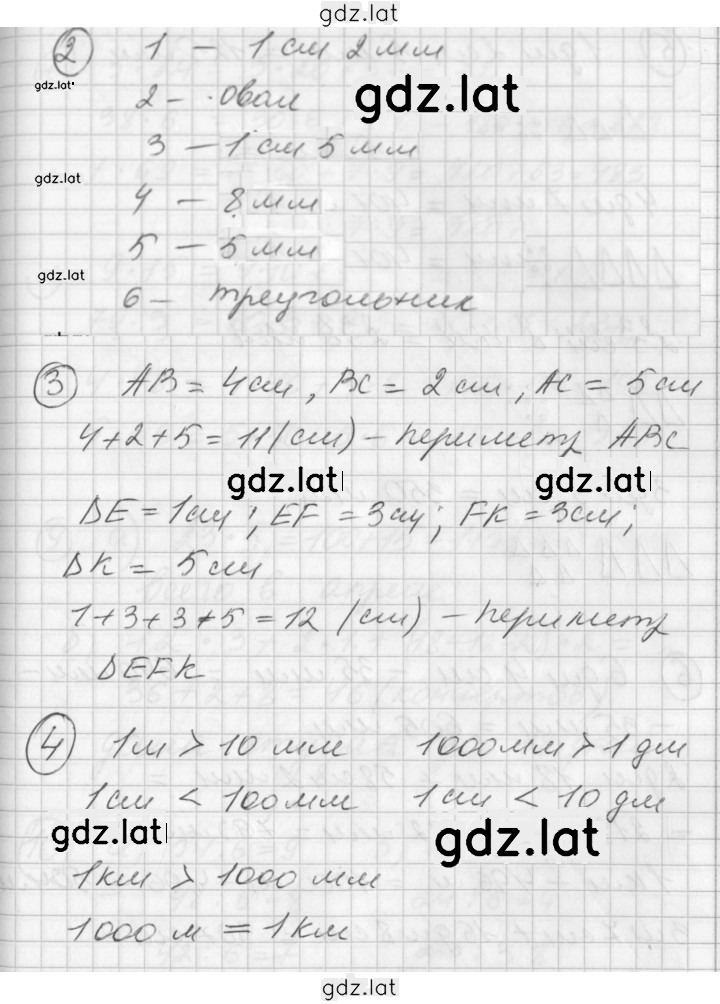 gdz.lat
2 1 - 1 см 2 мм
gdz.lat
2 - овал
gdz.lat
3 - 1 см 5 мм
gdz.lat
4 - 8 мм
5 - 5 мм
gdz.lat
6 - треугольник
3 AB = 4 см, BC = 2 см, AC = 5 см
4+2+5 = 11 (см) - периметр ABC
gdz.lat gdz.lat
DE = 1 см; EF = 3 см; FK = 3 см;
DK = 5 см
1+3+3+5 = 12 (см) - периметр
DEFK
4 1 м > 10 мм 1000 мм > 1 дм
1 см < 100 мм 1 см < 10 дм
gdz.lat gdz.lat
1 км > 1000 мм
1000 м = 1 км
gdz.lat